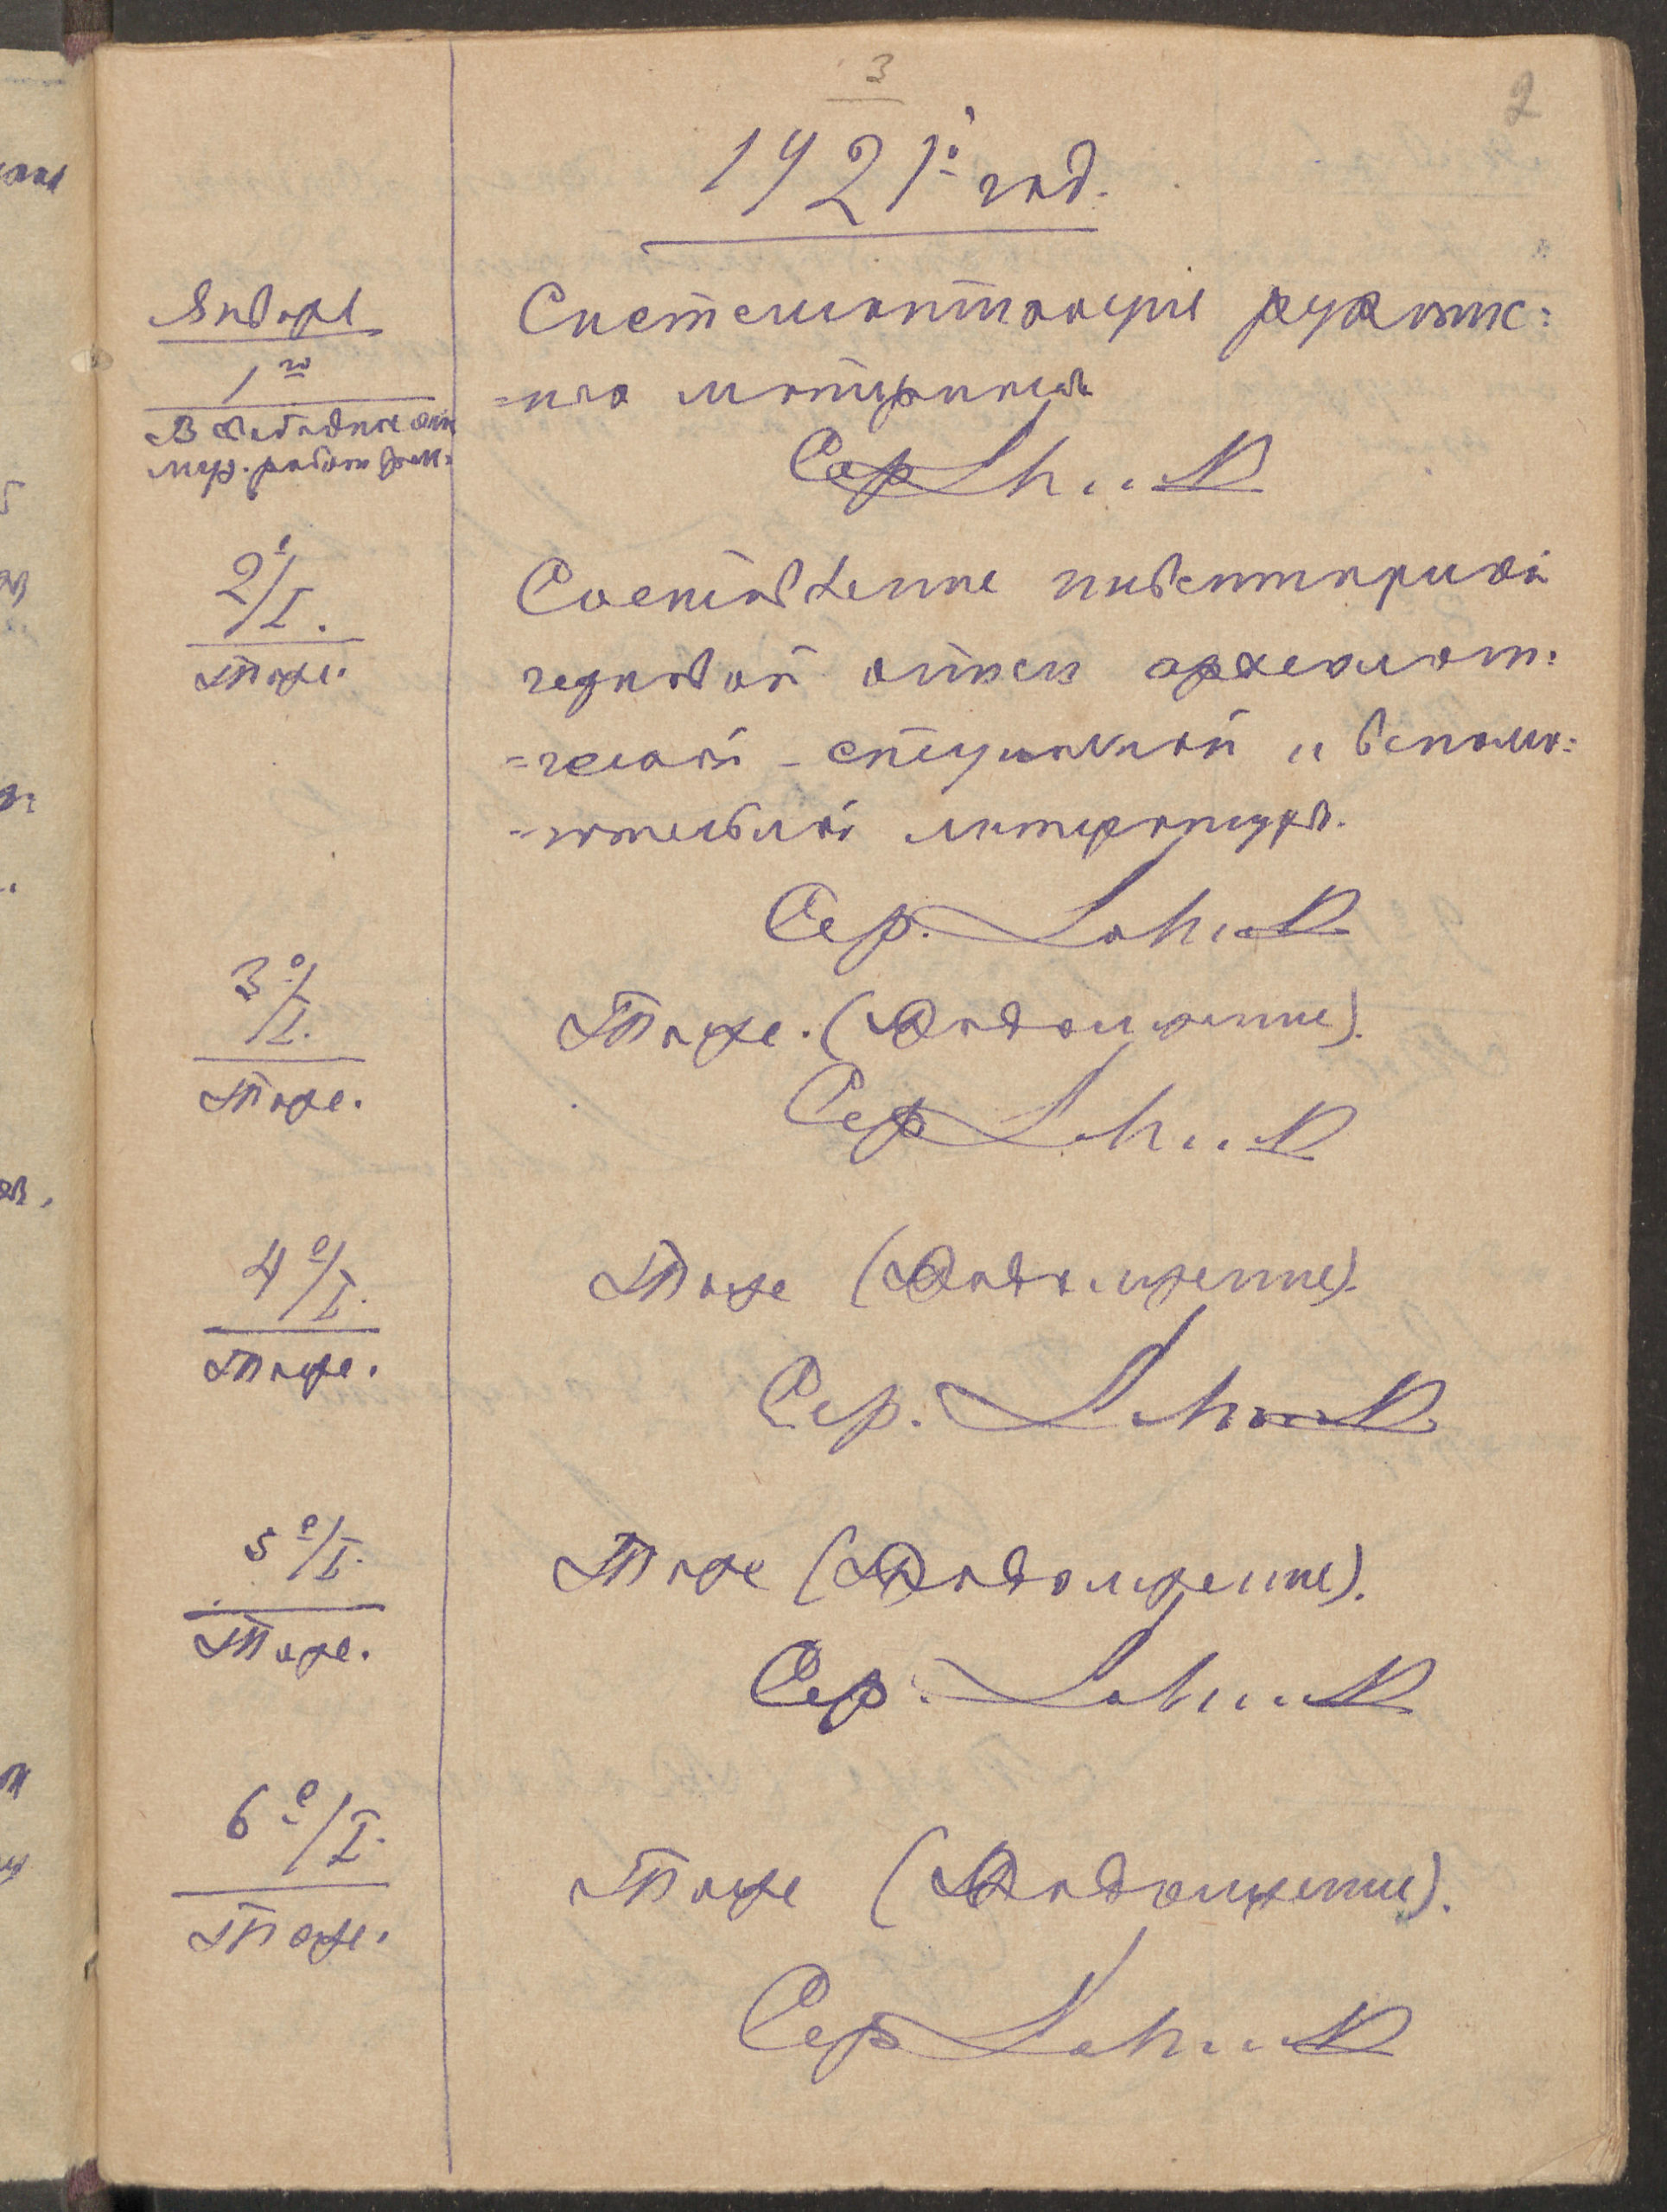 3
2
1921й год.
Января
1го
В свободное от
Систематизация
=ного материала
Сер
2/I.
Тоже.
Составление инвентарной
черновой описи археологи=
=ческой - специальной и вспомо=
=гательной литературы.
Сер.
3е/I.
Тоже.
Тоже. (Продолжение).
Сер
4е/I.
Тоже.
Тоже (Продолжение).
Сер.
5е/I.
Тоже.
Тоже (Продолжение).
Сер.
6е/I.
Тоже.
Тоже (Продолжение).
Сер